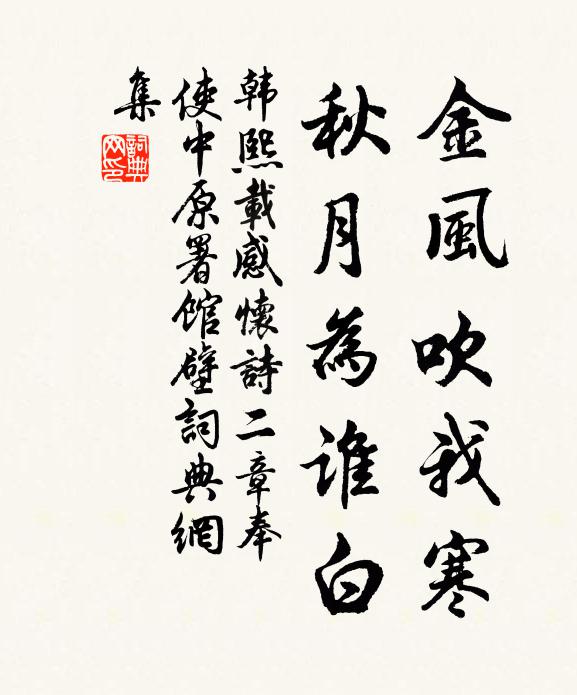 金風吹我寒
秋月為誰白
韩熙載感懷詩二章奉
使中原署館壁詞典網
集
詞典
网印